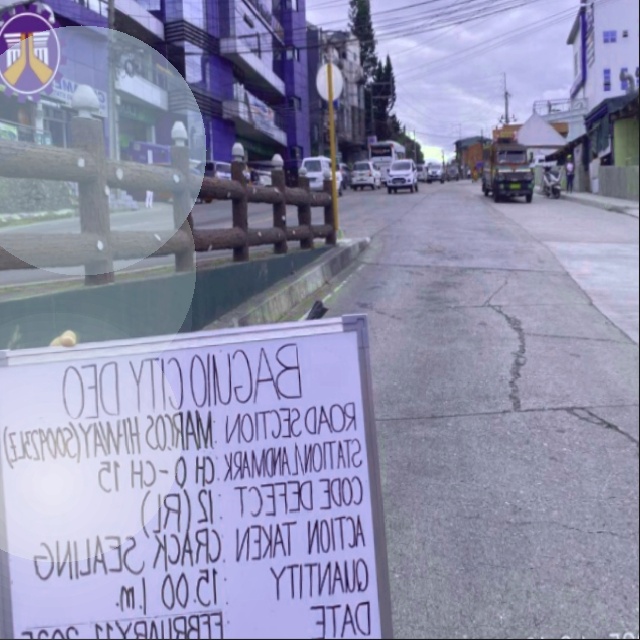 BAGUIO CITY DEO
ROAD SECTION : MARCOS HIWAY (S00172LZ)
STATION/LANDMARK : CH 0 - CH 15
CODE DEFECT : 12 (RL)
ACTION TAKEN : CRACK SEALING
QUANTITY : 15.00 l.m.
DATE : FEBRUARY 11, 2025